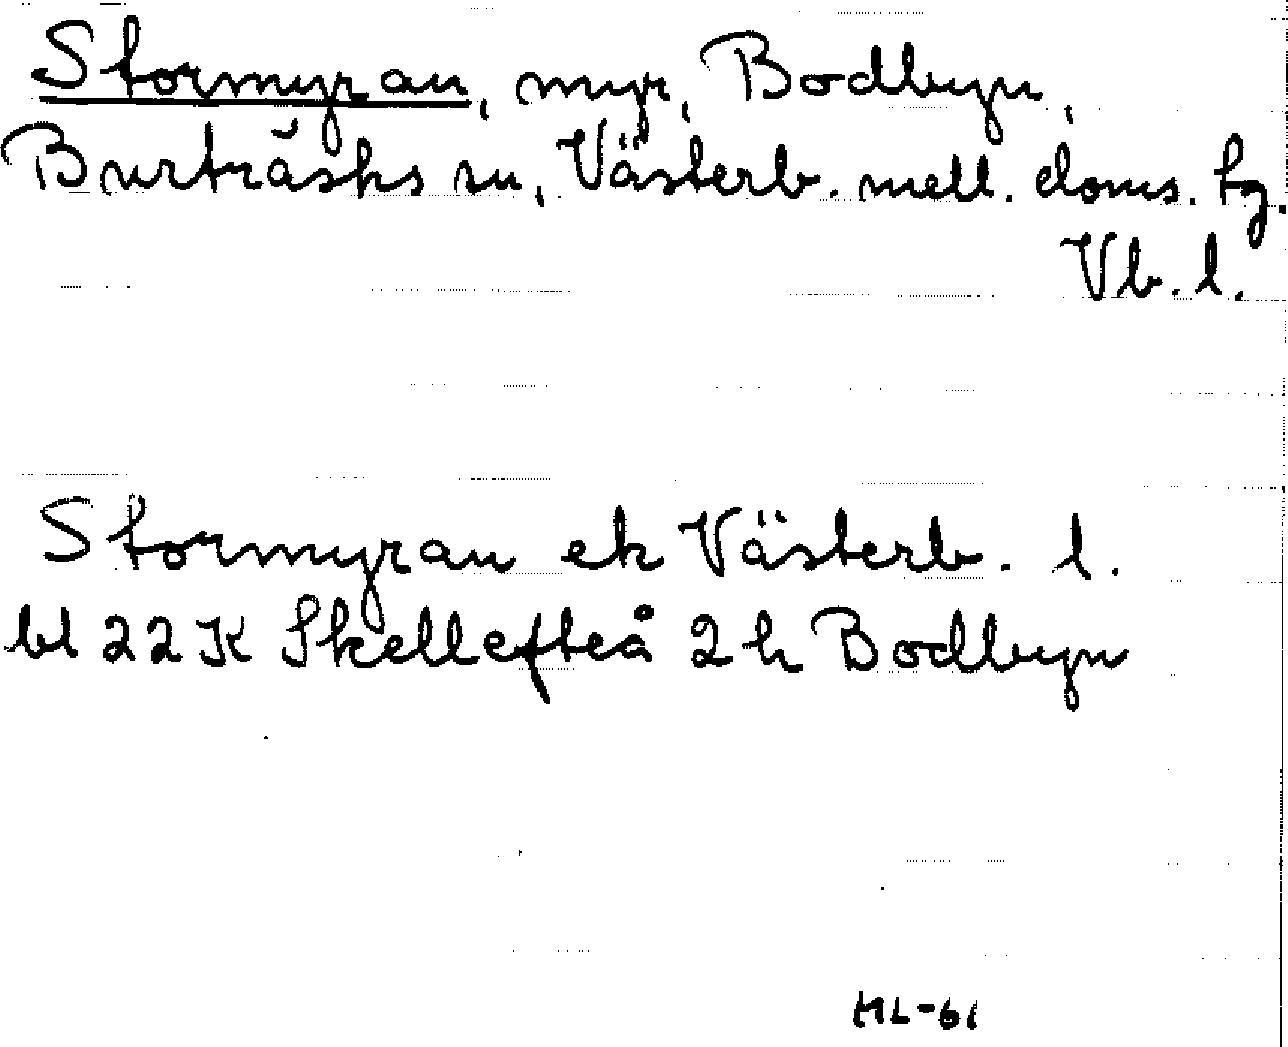 Stormyran, myr, Bodbyn,
Burträsks sn, Västerb. mell. doms. tg.
Vb. l.
Stormyran ek Västerb. l.
bl 22 K Skellefteå 2 h Bodbyn
HL-61